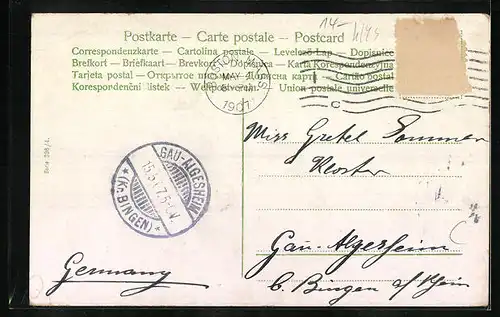 14.- h/45
Postkarte — Carte postale — Postcard
Correspondenzkarte — Cartolina postale — Levelező-Lap — Dopisnice
Brefkort — Briefkaart — Brevkort — Dopisnica — Karta Korespondencyjna
Tarjeta postal — Открытое письмо — Дописна карта — Cartão postal
Korespondenční listek — Weltpostverein — Union postale universelle
BOSTON, MASS
MAY
1907
C
Serie 336/4.
Miss Gretel Sommer
Kloster
GAU-ALGESHEIM
* (Kr. BINGEN) *
Gau-Algesheim
Germany
b. Bingen a/Rhein